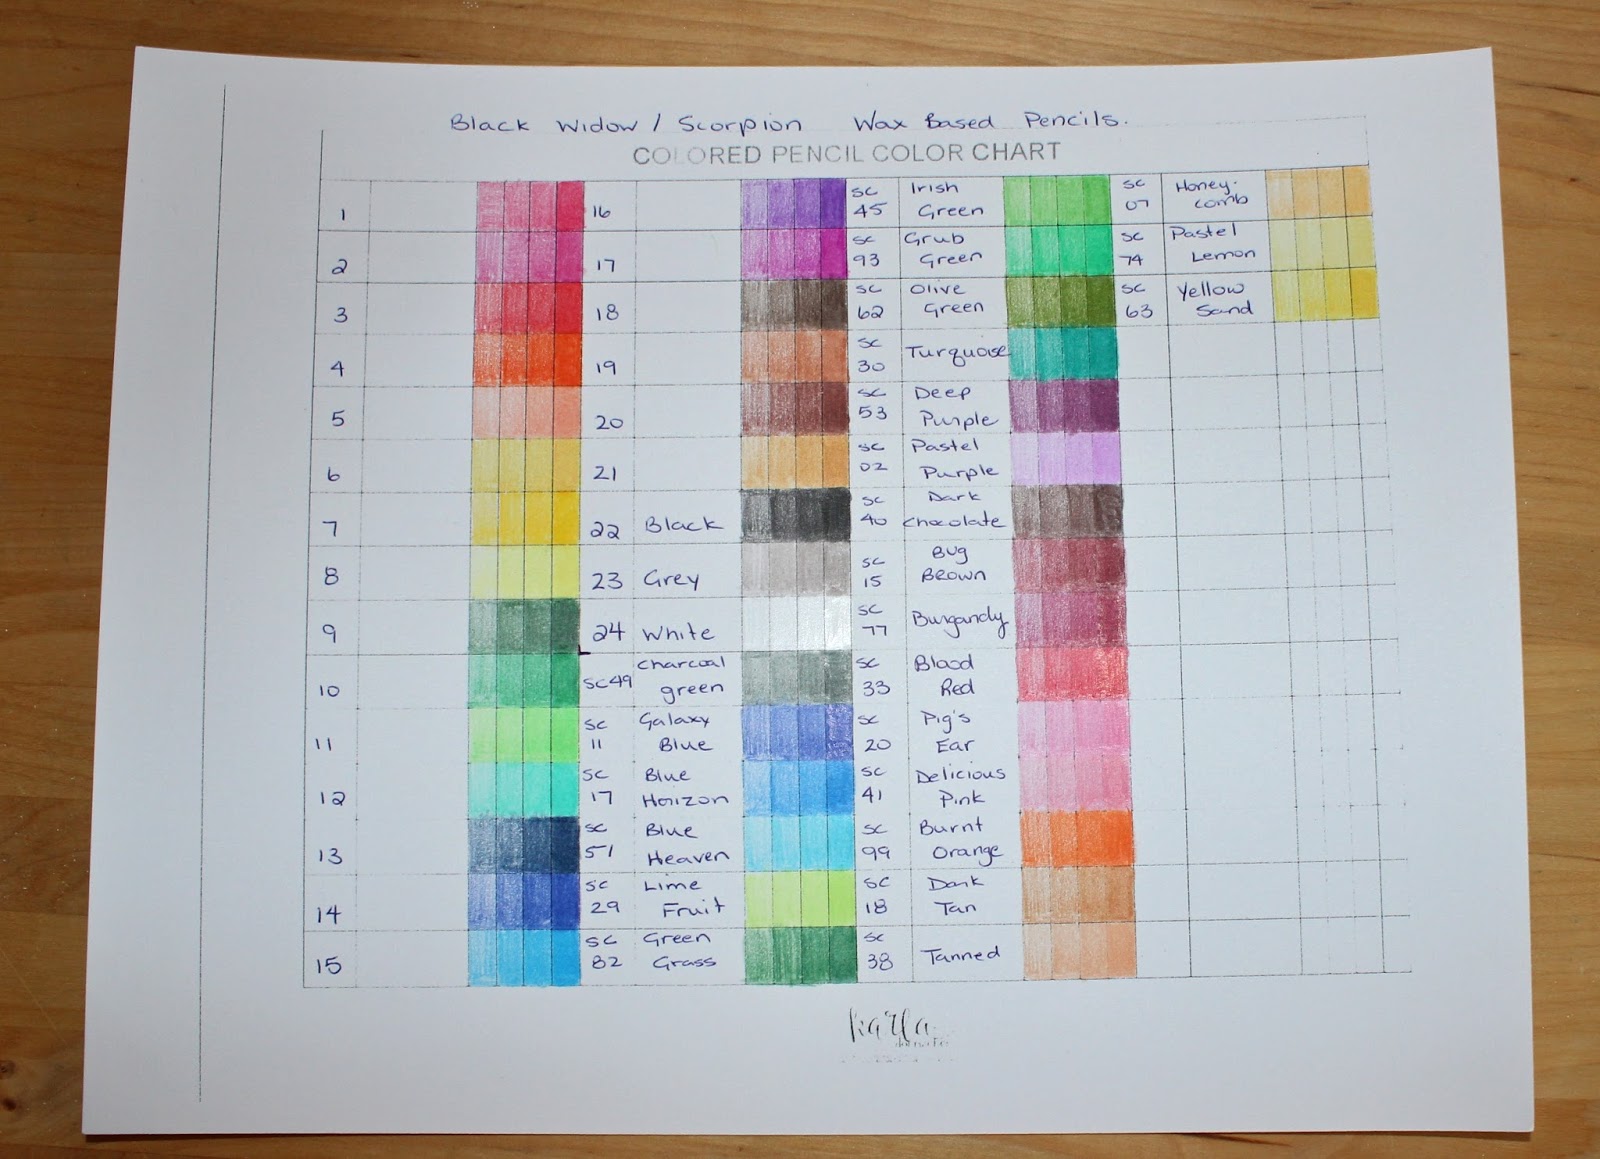 Black Widow / Scorpion Wax Based Pencils.
COLORED PENCIL COLOR CHART
1
2
3
4
5
6
7
8
9
10
11
12
13
14
15
16
17
18
19
20
21
22 Black
23 Grey
24 White
SC49 Charcoal
green
SC Galaxy
11 Blue
SC Blue
17 Horizon
SC Blue
51 Heaven
SC Lime
29 Fruit
SC Green
82 Grass
SC Irish
45 Green
SC Grub
93 Green
SC Olive
62 Green
SC
30 Turquoise
SC Deep
53 Purple
SC Pastel
02 Purple
SC Dark
40 Chocolate
SC Bug
15 Brown
SC
77 Burgandy
SC Blood
33 Red
SC Pig's
20 Ear
SC Delicious
41 Pink
SC Burnt
99 Orange
SC Dark
18 Tan
SC
38 Tanned
SC Honey-
07 comb
SC Pastel
74 Lemon
SC Yellow
63 Sand
karla